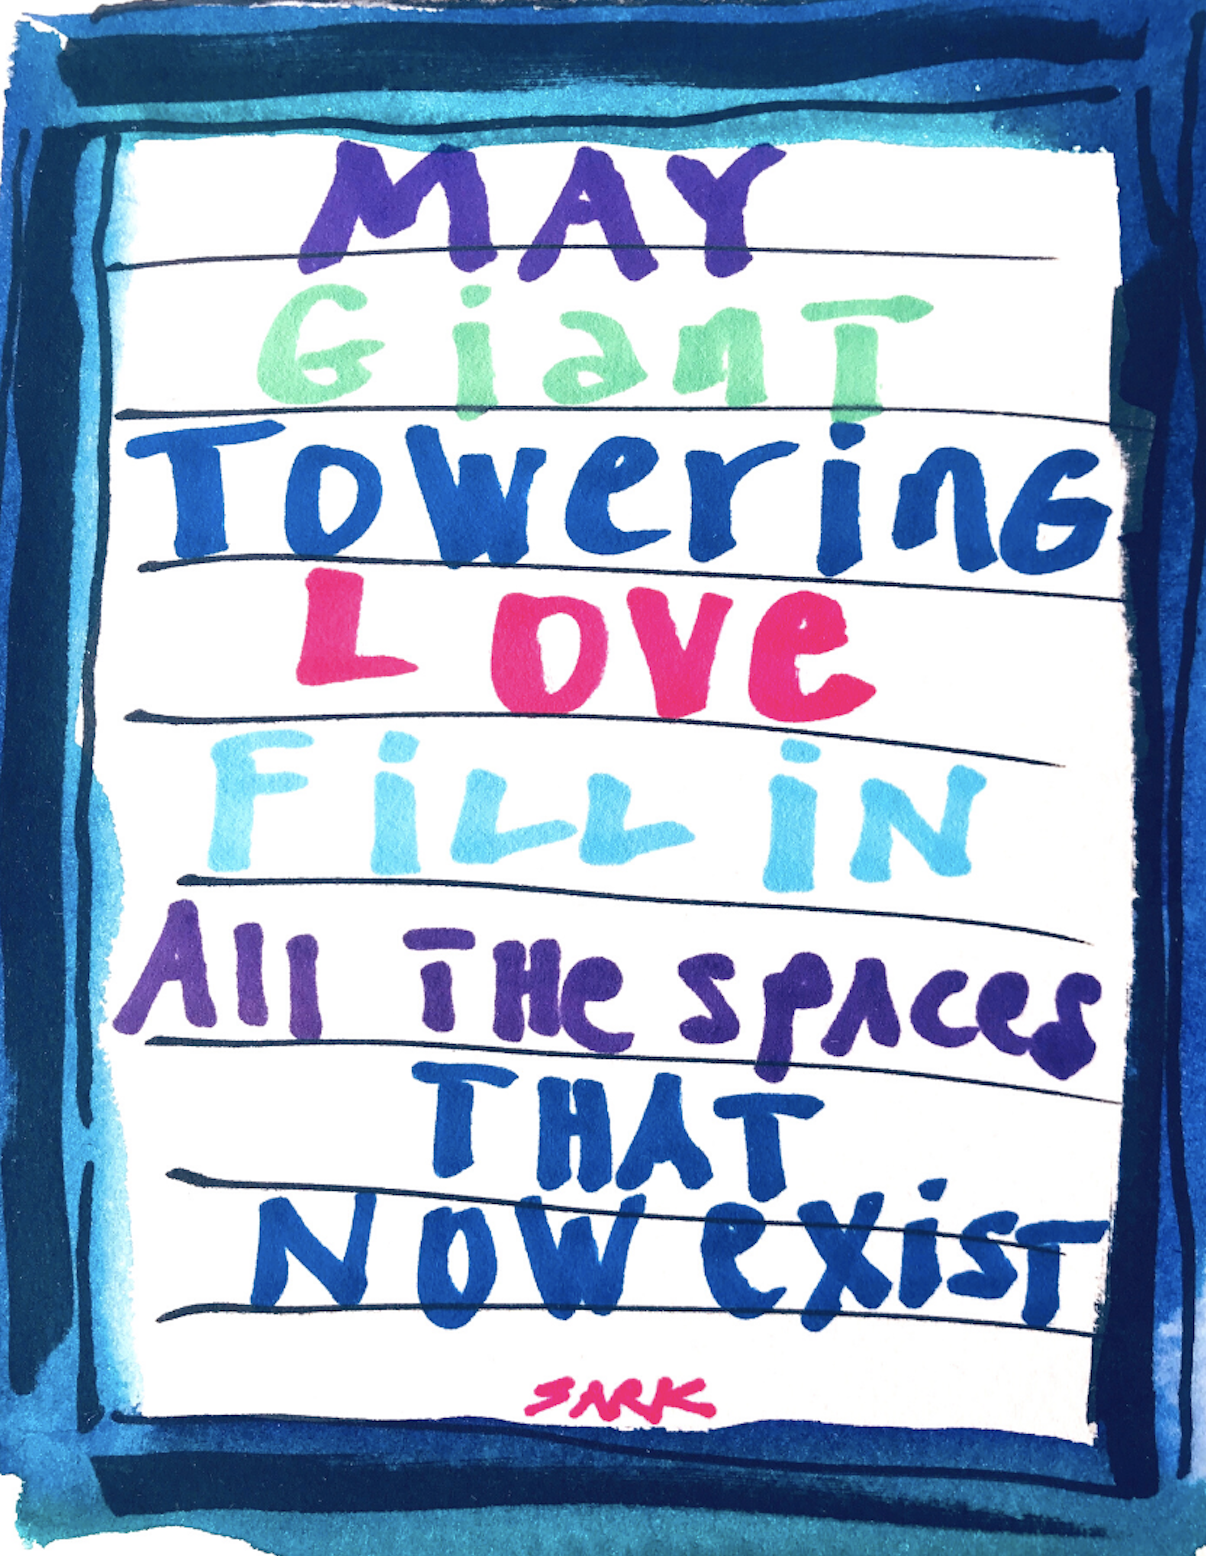 MAY
GianT
TOWeriNG
LOVe
FiLL iN
All THe spAces
THAT
NOW exisT
SARK